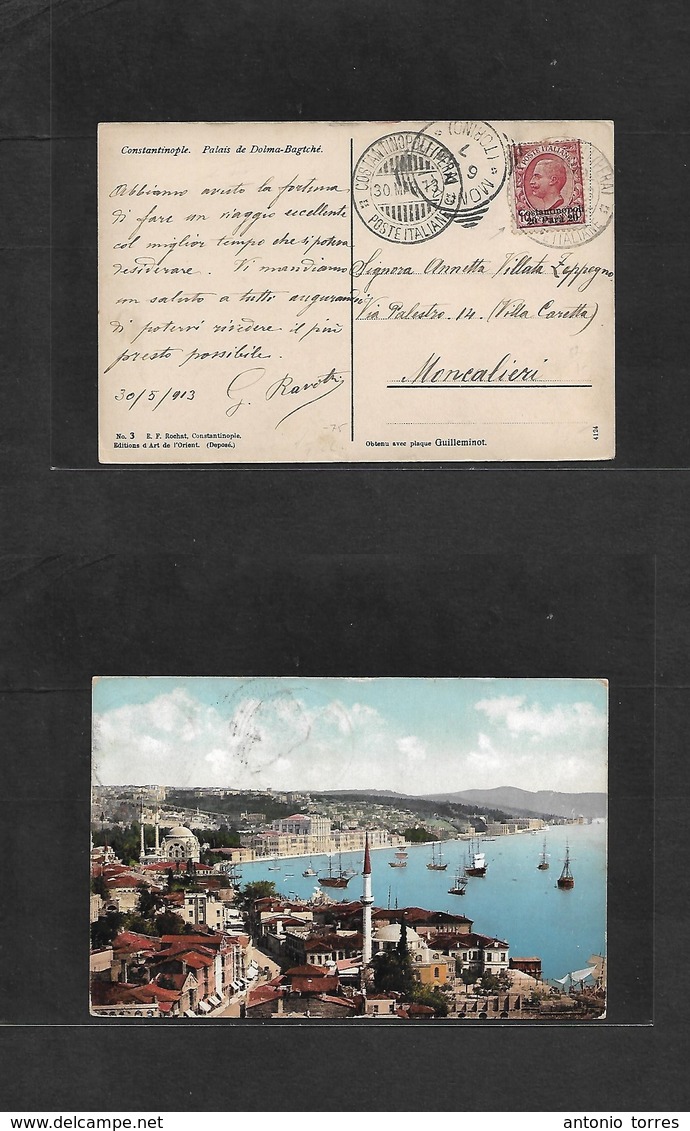 Constantinople. Palais de Dolma-Bagtché.
Abbiamo avuto la fortuna
di fare un viaggio eccellente
col miglior tempo che si poteva
desiderare. Vi mandiamo
un saluto a tutti augurandoci
di potervi rivedere il più
presto possibile.
30/5/913 G.
COSTANTINOPOLI (PERA)
30 MAG 13
POSTE ITALIANE
(TORINO)
6 7
POSTE ITALIANE
Costantinopoli
20 Para 20
Signora Annetta Villata Zeppegno
Via Palestro. 14. (Villa Caretta)
Moncalieri
No. 3 E. F. Rochat, Constantinople.
Editions d Art de l'Orient. (Deposé.)
-75
Obtenu avec plaque Guilleminot.
4124
antonio torres